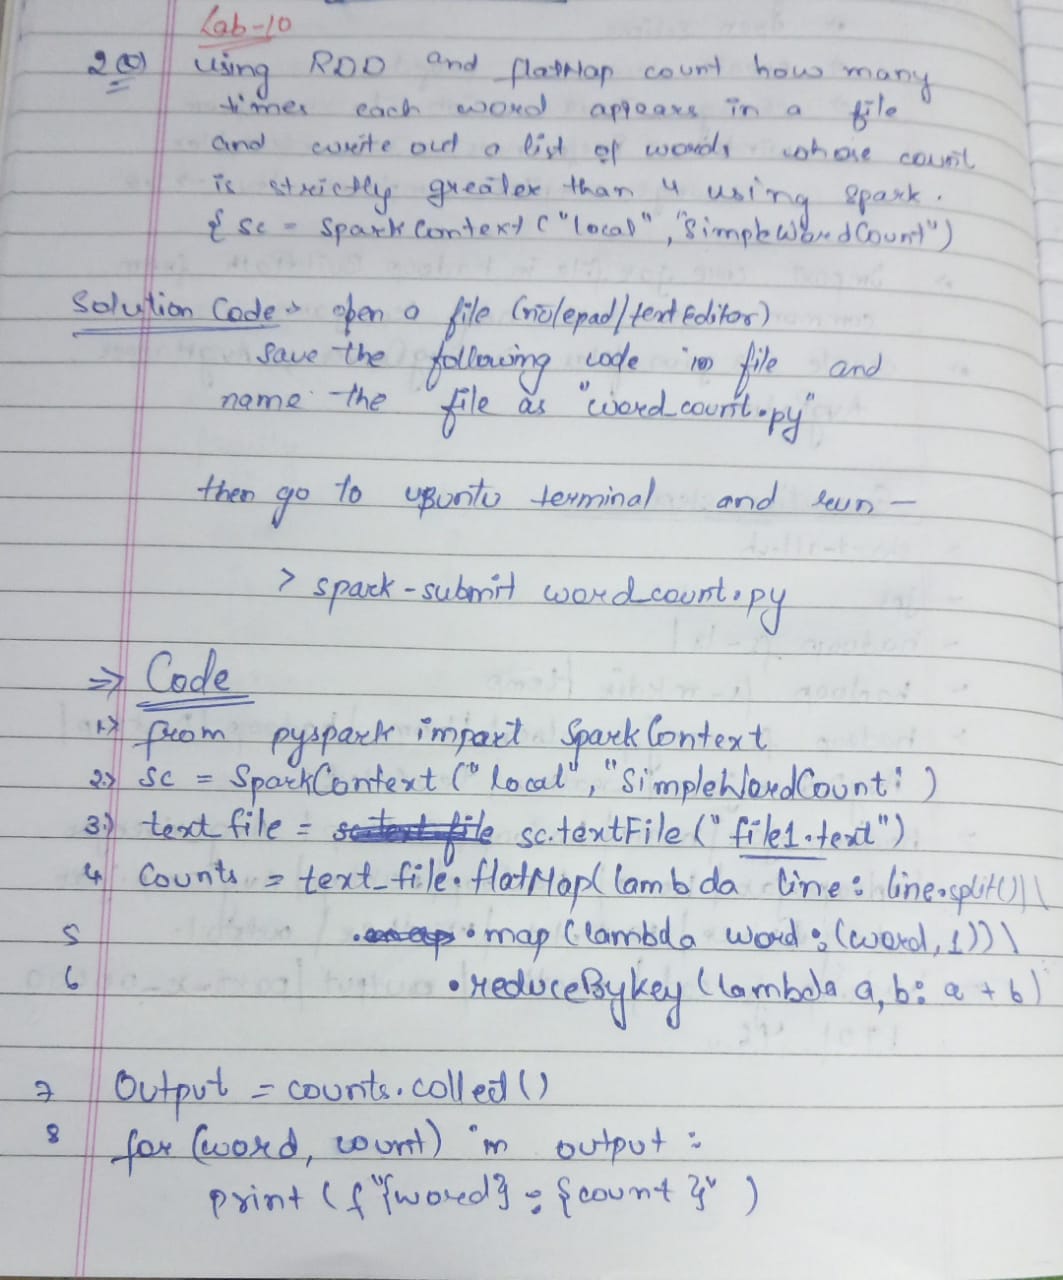 Lab-10
2(b) using RDD and flatMap count how many
times each word appears in a file
and write out a list of words whose count
is strictly greater than 4 using spark.
{ sc = SparkContext ("local", "SimpleWordCount")
Solution Code → open a file (notepad/text Editor)
save the following code in file and
name the file as "word_count.py"
then go to ubuntu terminal and run -
> spark-submit word_count.py
⇒ Code
1.> from pyspark import SparkContext
2.> sc = SparkContext ("local", "SimpleWordCount")
3.) text file = sc.textFile ("file1.text")
4 Counts = text_file.flatMap( lambda line: line.split()) \
5 .map (lambda word: (word, 1)) \
6 .reduceByKey (lambda a, b: a + b)
7 Output = counts.collect ()
8 for (word, count) in output :
print (f"{word} : {count}")